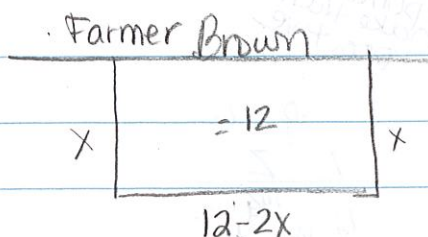 Farmer Brown
= 12
x x
12-2x